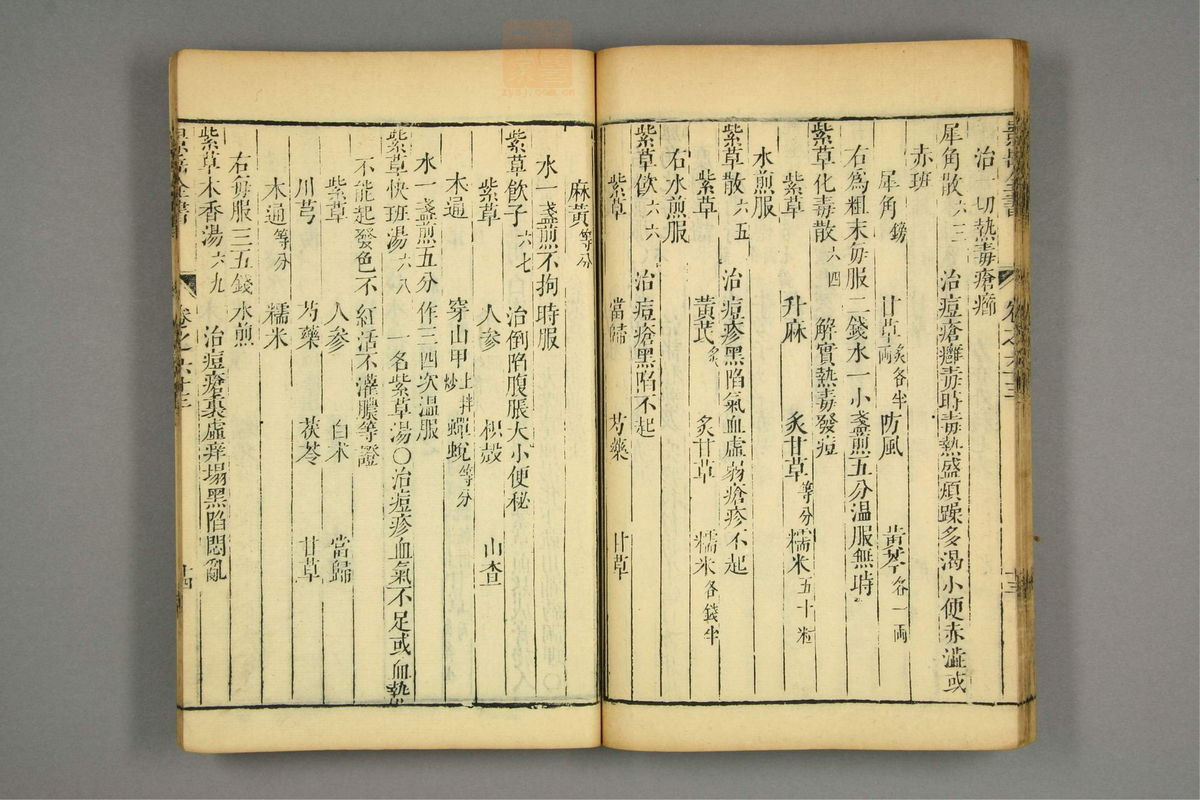 治一切熱毒瘡癤
犀角散六三 治痘瘡癰毒時毒熱盛煩躁多渴小便赤澁或
赤班
犀角鎊 甘草炙各半兩 防風 黃芩各一兩
右為粗末每服二錢水一小盞煎五分温服無時
紫草化毒散六四 解實熱毒發痘
紫草 升麻 炙甘草等分 糯米五十粒
水煎服
紫草散六五 治痘疹黑陷氣血虛弱瘡疹不起
紫草 黃芪炙 炙甘草 糯米各錢半
右水煎服
紫草飲六六 治痘瘡黑陷不起
紫草 當歸 芍藥 甘草
麻黃等分
水一盞煎不拘時服
紫草飲子六七 治倒陷腹脹大小便秘
紫草 人參 枳殼 山查
木通 穿山甲上拌炒 蟬蛻等分
水一盞煎五分作三四次温服
紫草快班湯六八 一名紫草湯○治痘疹血氣不足或血熱
不能起發色不紅活不灌膿等證
紫草 人參 白术 當歸
川芎 芍藥 茯苓 甘草
木通等分 糯米
右每服三五錢水煎
紫草木香湯六九 治痘瘡裏虛痒塌黑陷悶亂
景岳全書 卷之六十三 十四
zysj.com.cn